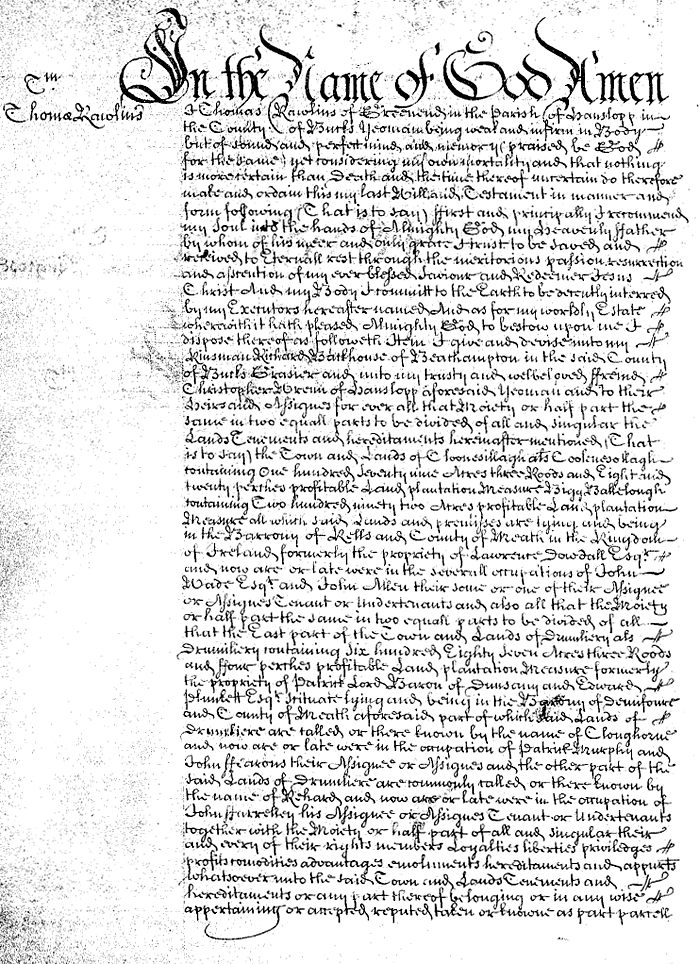 In the Name of God Amen
Tm
Thomæ Rawlins
I Thomas Rawlins of Greenend in the Parish of Hanslopp in
the County of Bucks Yeoman being weak and infirm in Body
but of sound and perfect mind and memory (praised be God
for the same) yet considering my own mortality and that nothing
is more certain than Death and the time thereof uncertain do therefore
make and ordain this my last Will and Testament in manner and
form following (That is to say) ffirst and principally I recommend
my Soul into the hands of Almighty God my Heavenly ffather
by whom of his meer and only grace I trust to be saved and
received to Eternall rest through the meritorious passion resurrection
and ascention of my ever blessed Saviour and Redeemer Jesus
Christ And my Body I committ to the Earth to be decently interred
by my Executors hereafter named And as for my worldly Estate
wherewith it hath pleased Almighty God to bestow upon me I
dispose thereof as followeth Item I give and devise unto my
Kinsman Richard Backhouse of Beachampton in the said County
of Bucks Grasier and unto my trusty and welbeloved ffreind
Christopher Brenn of Hanslopp aforesaid Yeoman and to their
Heirs and Assignes for ever all that Moiety or half part the
same in two equall parts to be divided of all and singular the
Lands Tenements and hereditaments hereinafter mentioned (That
is to say) the Town and Lands of Cloonesillagh als Coolenesollagh
containing One hundred Seventy nine Acres three Roods and Eight and
twenty perches profitable Land plantation Measure Bigg Balrelough
containing Two hundred ninety two Acres profitable Land plantation
Measure all which said Lands and premisses are lying and being
in the Barrony of Kells and County of Meath in the Kingdom
of Ireland formerly the propriety of Lawrence Dowdall Esqr.
and now are or late were in the severall occupations of John
Wade Esqr. and John Allen their some or one of their Assignee
or Assignes Tenant or Undertenants and also all that the Moiety
or half part the same in two equall parts to be divided of all
that the East part of the Town and Lands of Drumliery als
Drumliery containing Six hundred Eighty Seven Acres three Roods
and ffour perches profitable Land plantation Measure formerly
the propriety of Patrick Lord Baron of Dunsany and Edward
Plunkett Esqr. scituate lying and being in the Barony of Demifoure
and County of Meath aforesaid part of which said Lands of
Drumliere are called or there known by the name of Cloughorne
and now are or late were in the occupation of Patrick Murphy and
John ffearons their Assignee or Assignes and the other part of the
said Lands of Drumliere are commonly called or there known by
the name of Rehard and now are or late were in the occupation of
John his Assignee or Assignes Tenant or Undertenants
together with the Moiety or half part of all and singular their
and every of their rights members Loyalties liberties priviledges
profits comodities advantages emoluments hereditaments and appurts
whatsoever unto the said Town and Lands Tenements and
hereditaments or any part thereof belonging or in any wise
appertaining or accepted reputed taken or knowne as part parcell